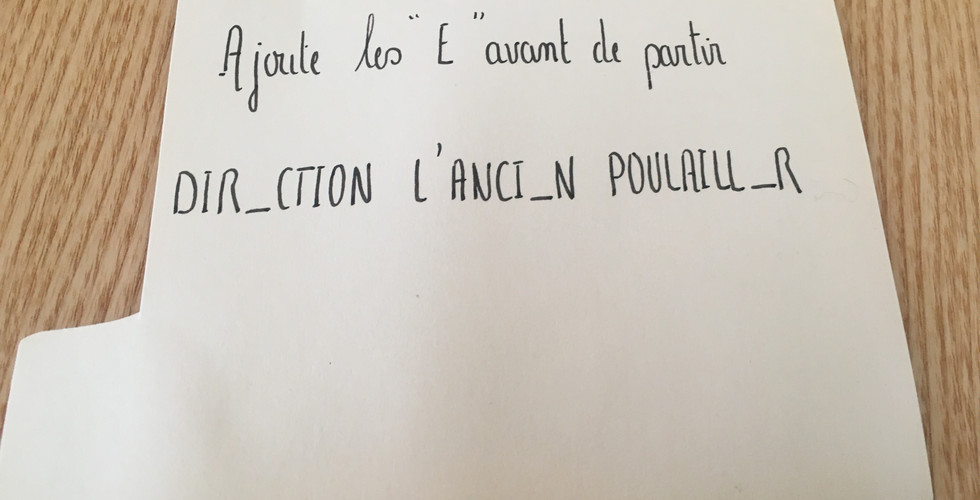 Ajoute les "E" avant de partir
DIR_CTION L'ANCI_N POULAILL_R